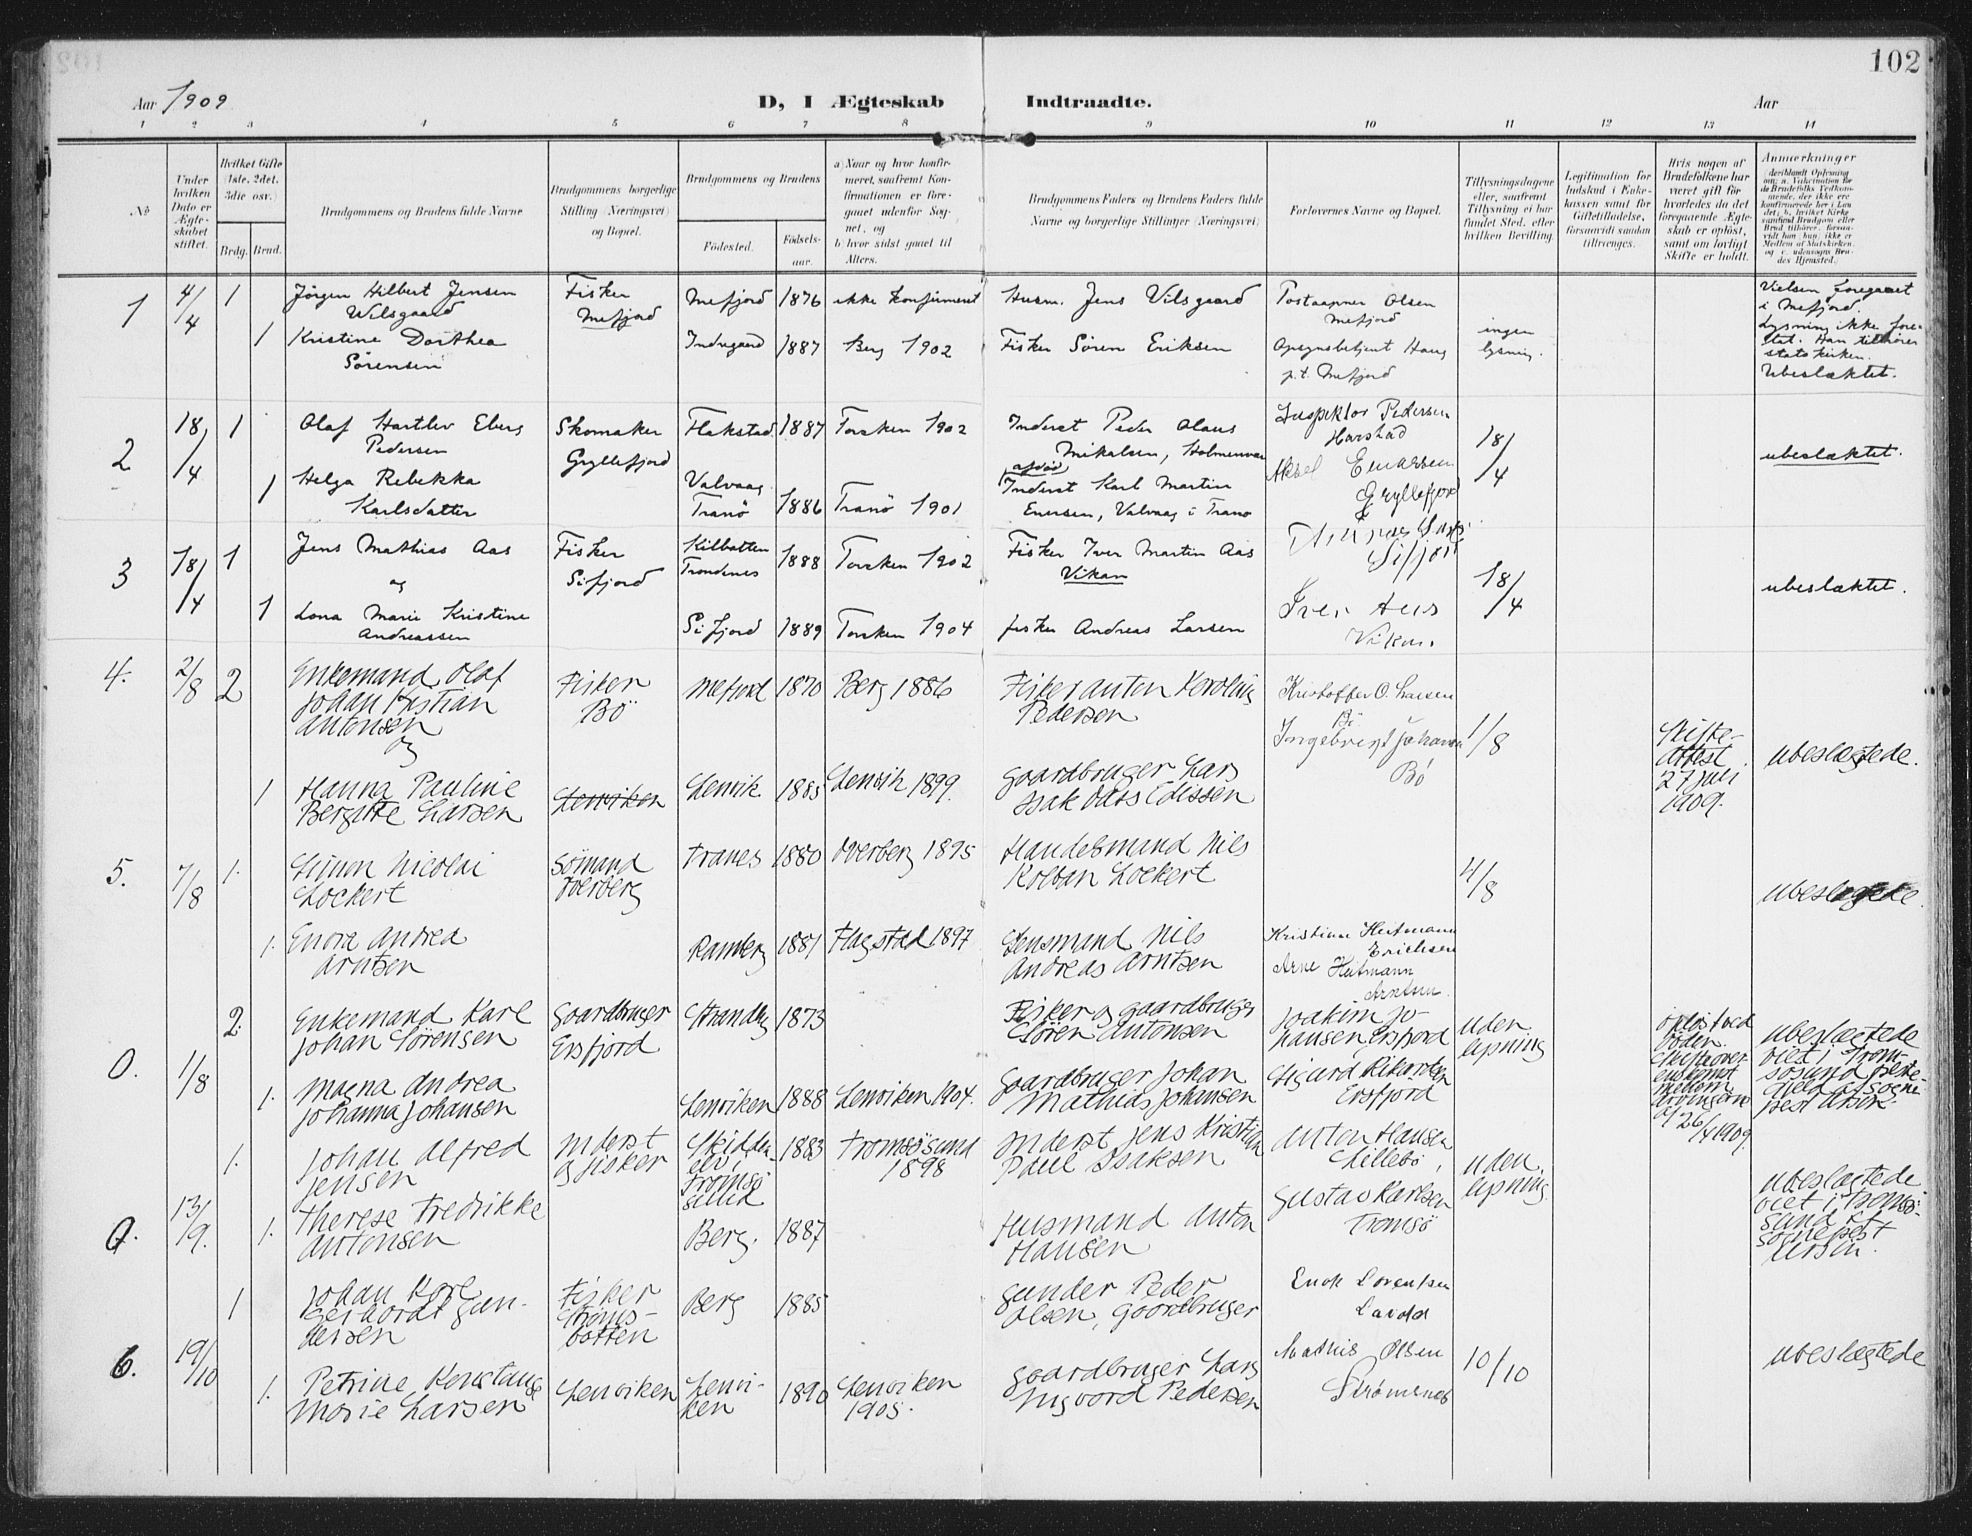 102
Aar 1909
D, I Ægteskab Indtraadte.
Aar
1 2 3 4 5 6 7 8 9 10 11 12 13 14
No
Under
hvilken
Dato er
Ægte-
skabet
stiftet.
Hvilket Gifte
(1ste, 2det,
3die osv.)
Brdg. Brud.
Brudgommens og Brudens fulde Navne
Brudgommens borgerlige
Stilling (Næringsvei)
og Bopæl.
Brudgommens og Brudens
Fødested.
Fødsels-
aar.
a) Naar og hvor konfir-
meret, saafremt Kon-
firmationen er fore-
gaaet udenfor Sog-
net, og
b) hvor sidst gaaet til
Alters.
Brudgommens Faders og Brudens Faders fulde
Navne og borgerlige Stillinger (Næringsvei)
Forlovernes Navne og Bopæl.
Tillysningsdagene
eller, saafremt
Tillysning ei har
fundet Sted, efter
hvilken Bevilling.
Legitimation for
Indskud i Enke-
kassen samt for
Giftetilladelse,
forsaavidt saadan
tiltrænges.
Hvis nogen af
Brudefolkene har
været gift før
hvorledes da det
foregaaende Ægte-
skab er opløst,
samt om lovligt
Skifte er holdt.
Anmærkninger
1 4/4 1 Jørgen Hilbert Jensen
Wilsgaard
Fisker
Mefjord
Mefjord 1876 ikke konfirmeret
Husm. Jens Vilsgaard
Postaapner Olsen
Mefjord
1 Kristine Dorthea
Sørensen
Indregaard 1887 Berg 1902
Fisker Søren Eriksen
Opsynsbetjent Haug
p.t. Mefjord
ingen
lysning.
Vielsen foregaaet
i Mefjord.
Lysning ikke fore-
tat. Han tilhører
statskirken.
Ubeslæktet.
2 18/4 1 Olaf Hartlev Eberg
Pedersen
Skomaker
Gryllefjord
Flakstad 1887 Torsken 1902
Inderst Peder Olaus
Mikalsen, Holmenvær
Inspektør Pedersen
Harstad
18/4
ubeslæktet.
1 Helga Rebekka
Karlsdatter
Valvaag
Tranø 1886 Tranø 1901
afdød
Inderst Karl Martin
Enersen, Valvaag i Tranø
Aksel
Gryllefjord
3 18/4 1 Jens Mathias Aas
og
Fisker
Sifjord
Kilbotten
Trondenes 1888 Torsken 1902
Fisker Iver Martin Aas
Vikan
Sifjord
18/4
ubeslæktet.
1 Lona Marie Kristine
Andreassen
Sifjord 1889 Torsken 1904
fisker Andreas Larsen
Iver Aas
Vikan.
4. 2/8 2 Enkemand Olaf
Johan Kristian
Antonsen
og
Fisker
Bö
Mefjord 1870 Berg 1886
Fisker Anton Kerolius
Pedersen
Kristoffer O. Larsen
Bö
Ingebrigt Johansen
Bö
1/8
Skifte-
attest
27 juli
1909.
ubeslægtede.
1 Hanna Pauline
Bergitte Larsen
Lenviken
Lenvik 1885 Lenvik 1899.
Gaardbruger Lars
Isak Edissen
5. 7/8 1. Simon Nicolai
Lockert
Sömand
Överberg
Tranes 1880 Overberg 1895
Handelsmand Nils
Kolban Lockert
4/8
ubeslægtede
1. Enora Andrea
Arntsen
Ramberg 1881 Flagstad 1897
Lensmand Nils
Andreas Arntsen
Kristian Hutmann
Erichsen
Arne Hutmann
Arntsen.
0. 1/8 2. Enkemand Karl
Johan Sörensen
Gaardbruger
Ersfjord
Strandby 1873
Fisker og gaardbruger
Sören Antonsen
Joakim Jo-
hansen, Ersfjord
uden
lysning
opløst ved
døden.
26/4 1909.
ubeslægtede
viet i Trom-
sösund
1. Magna Andrea
Johanna Johansen
Lenviken 1888 Lenviken 1904.
Gaardbruger Johan
Mathias Johansen
Sigurd Rikardsen
Ersfjord
0. 13/9. 1. Johan Alfred
Jensen
Inderst
og fisker
Skidden-
elv,
Tromsö-
sund
1883 Tromsösund
1898
Inderst Jens Kristian
Paul Isaksen
Anton Hansen
Lillebö,
uden
lysning.
ubeslægtede
viet i Tromsö-
sund af
sognepest
1. Therese Fredrikke
Antonsen
Berg. 1887
Husmand Anton
Hansen
Gustav Karlsen
Tromsö
6. 19/10 1 Johan Kore
Gerhardt Gun-
dersen
Fisker
Ströms-
botten
Berg 1885
Gunder Peder
Olsen, Gaardbruger
Enok Lorentsen
Mathis Olsen
Strömsnes
10/10
ubeslægtede
1. Petrine Konstanse
Marie Larsen
Lenviken
Lenvi-
ken 1890 Lenviken
1905.
Gaardbruger Lars
Ingvard Pedersen